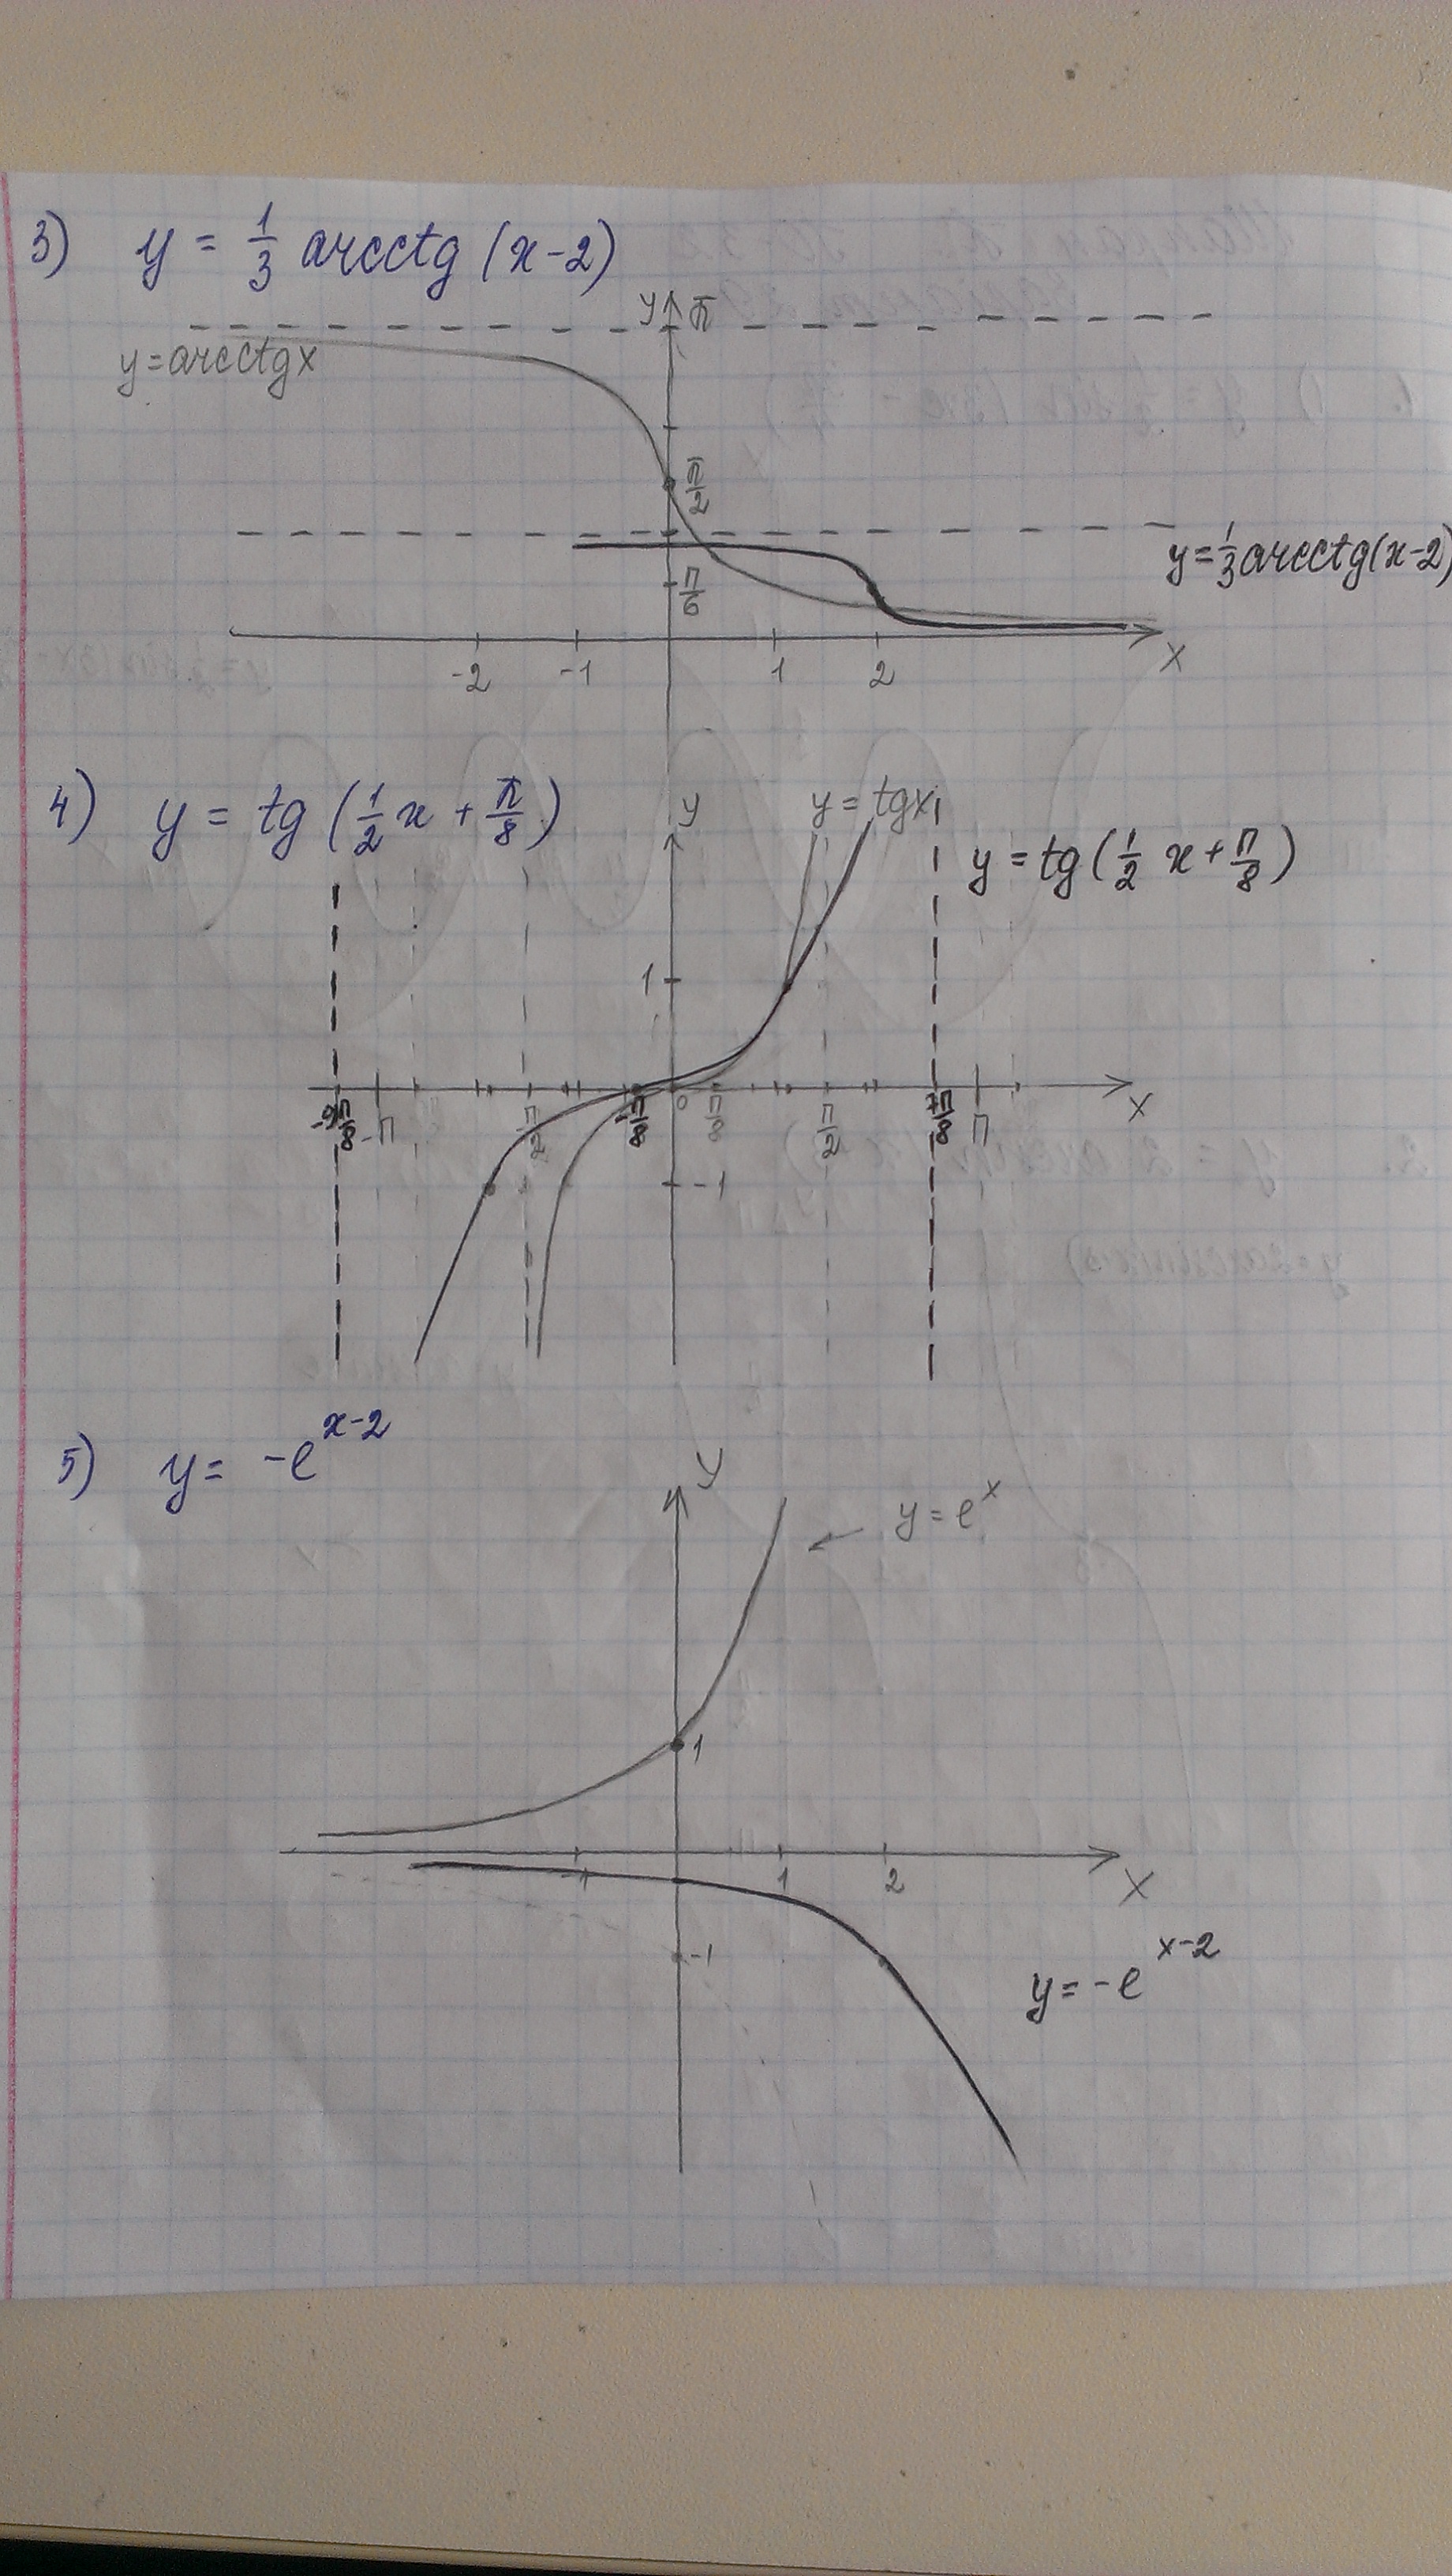 3) y = 1/3 arcctg (x-2)
y π
y = arcctgx
π/2
y = 1/3 arcctg(x-2)
π/6
-2 -1 1 2 x
4) y = tg (1/2 x + π/8)
y y = tgx
y = tg(1/2 x + π/8)
1
-9π/8 -π -π/2 -π/8 0 π/8 π/2 7π/8 π x
-1
5) y = -e^(x-2)
y
y = e^x
1
-1 1 2 x
-1
y = -e^(x-2)